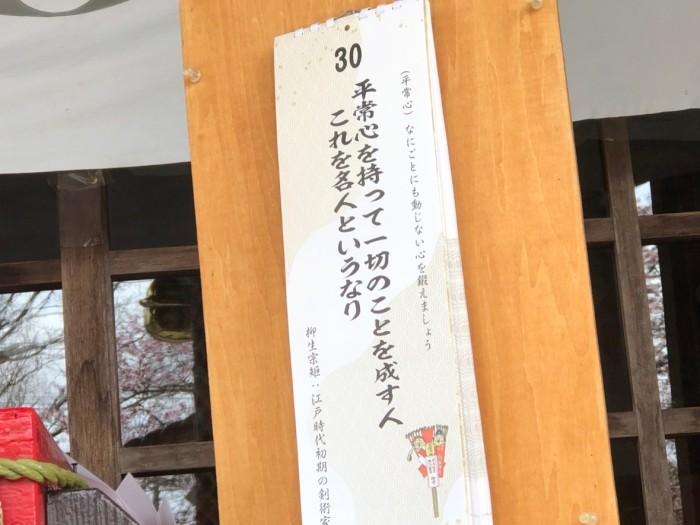 30
(平常心) なにごとにも動じない心を鍛えましょう
平常心を持って一切のことを成す人
これを名人というなり
柳生宗矩：江戸時代初期の剣術家